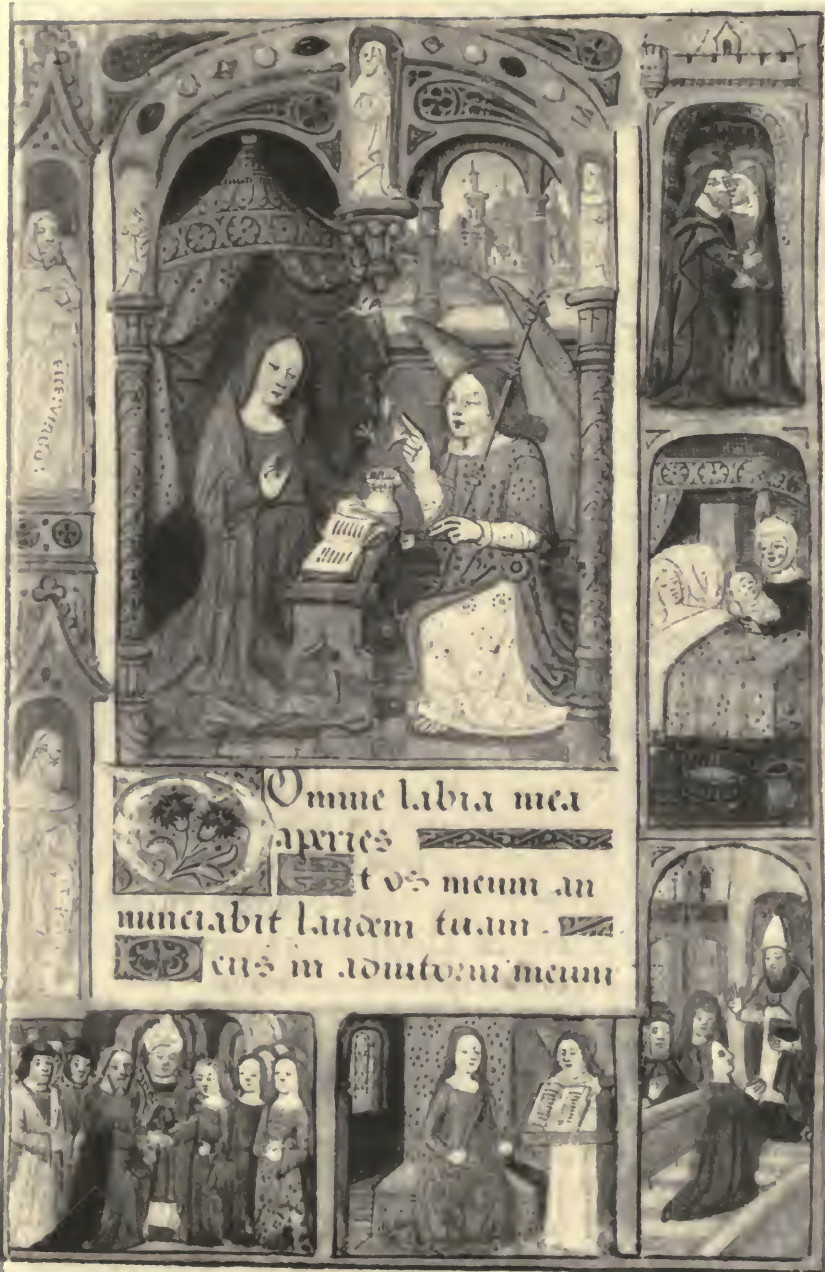 ECCE : VIRGO :
Domine labia mea
aperies
Et os meum an
nunciabit laudem tuam .
Deus in adiutorium meum